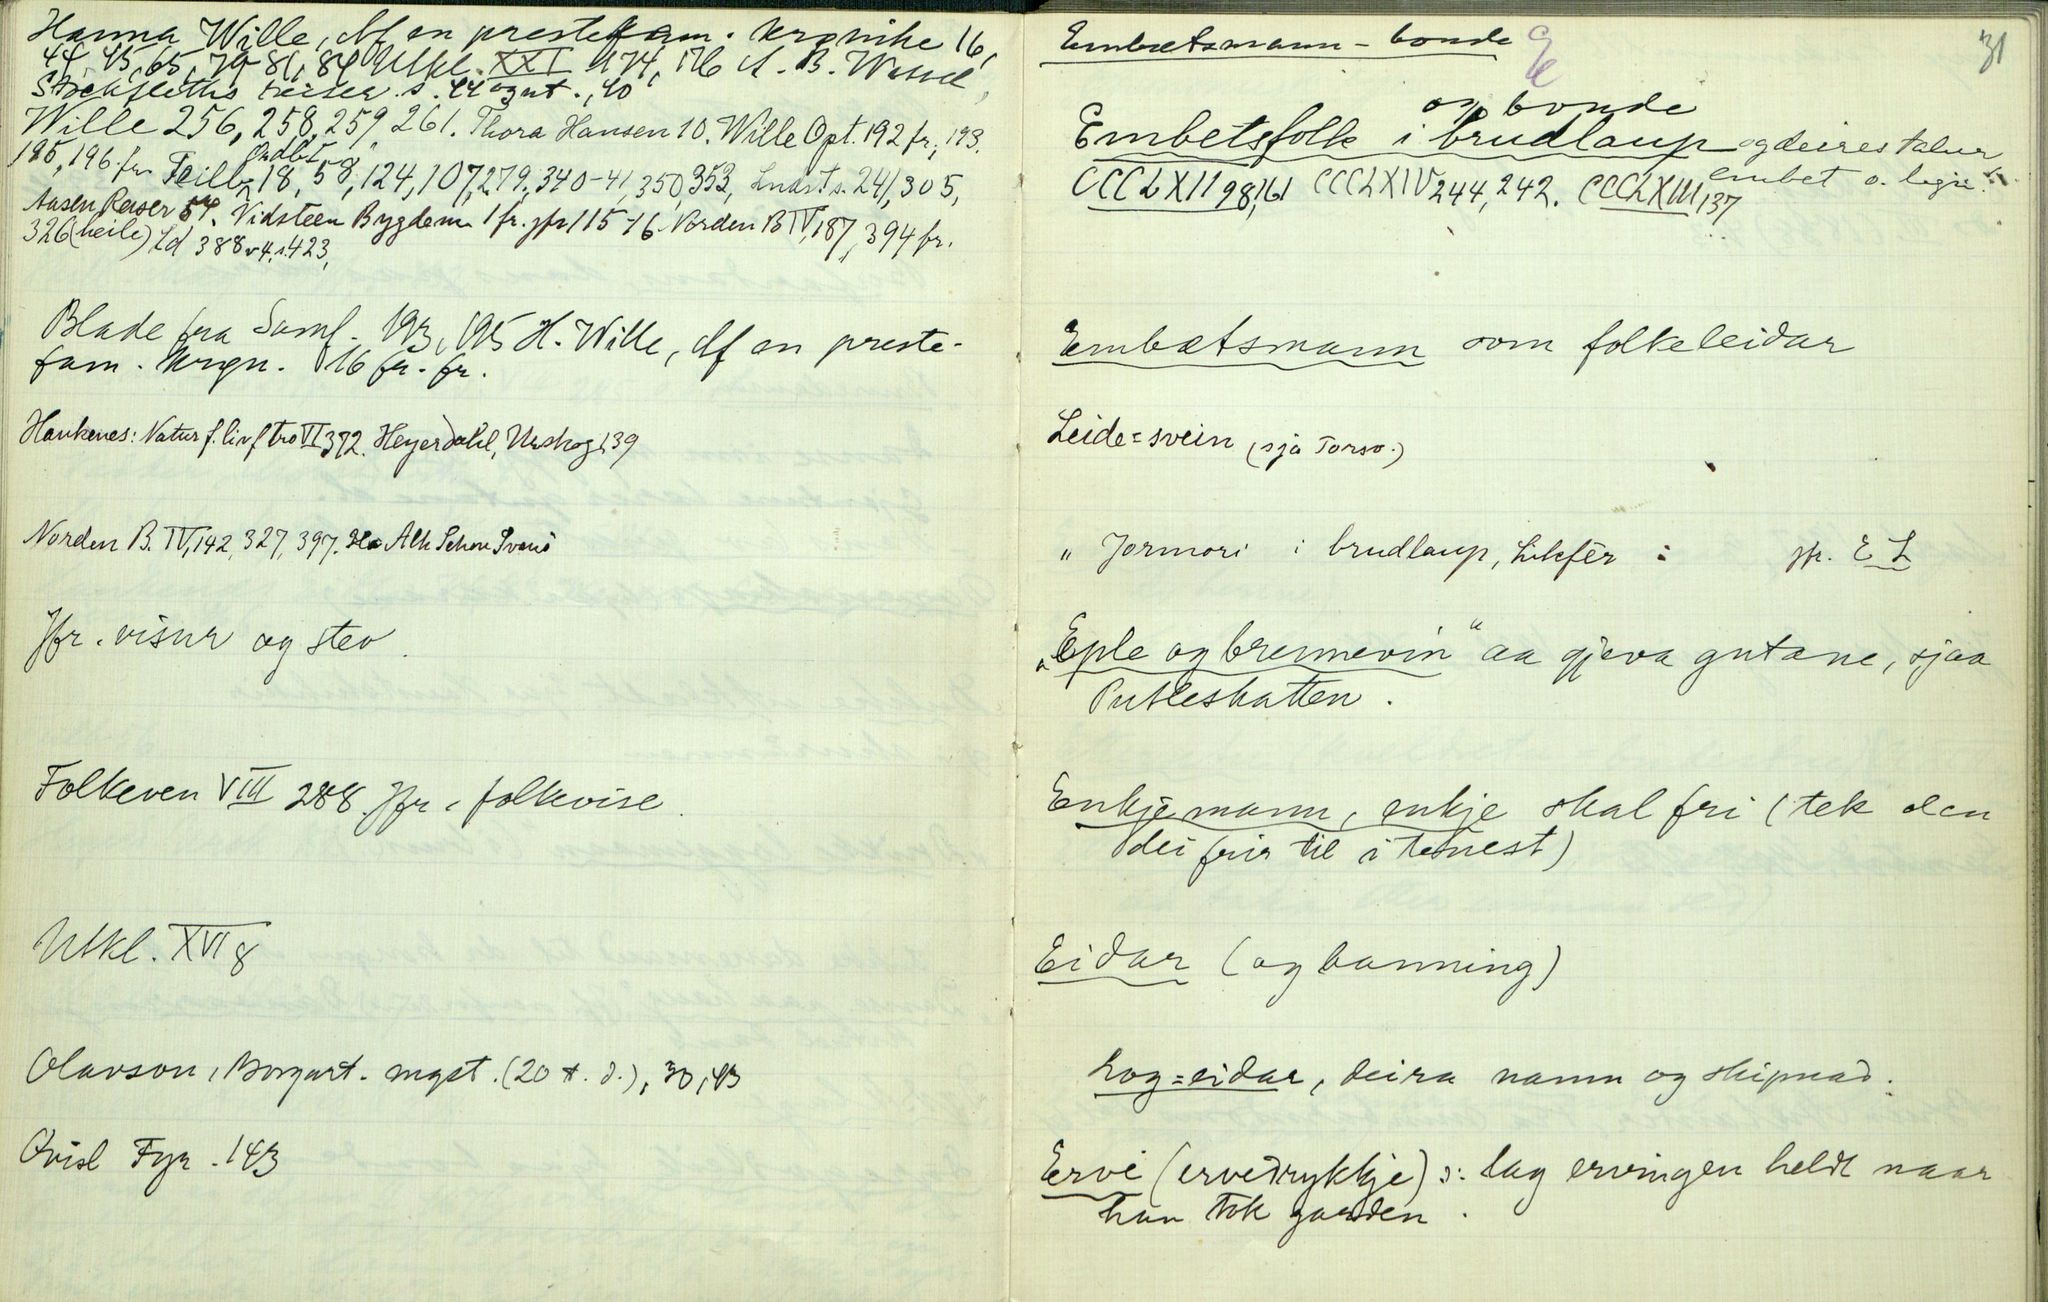 Hanna Wille, Af en prestefam. Krønike 16,
44, 45, 65, 79-81, 84 Utkl. XXI 174, 176 A. B. Wessel,
Stockfleths reiser s. 44 ognt., 40
Wille 256, 258, 259, 261. Thora Hansen 10. Wille Opt. 192 fr., 193.
195, 196. fr. Feilb. Ordbt. 18, 58, 124, 107, 279, 340-41, 350, 353, Lndst s. 241, 305,
Aasen Reiser 54. Vidsteen Bygdem 1 fr. jfr 115-16 Norden B IV, 187, 394 fr.
326 (heile) Ld 388 v 4. s. 423,
Blade fra Saml. 193, 195 H. Wille, Af en preste-
fam. Krøn. 16 fr. fr.
Haukenes: Natur f. liv f tro VI 372. Heyerdahl, Urskog 139
Norden B. IV, 142, 327, 397. Alh Schou Svanö
Jfr. visur og stev.
Folkeven VIII 288. Jfr. folkevise.
Utkl. XVI 8
Olavson, Borgart. mgst. (20 t. d.), 30, 43
Qvisl Fyr. 143
31
Embætsmann - bonde
E
og bonde
Embetsfolk i brudlaup og deires talur
embet o. legn.
CCCLXII 98, 161 CCCLXIV 244, 242. CCCLXIII 137
Embætsmann som folkeleidar
Leide=svein (sjå Torso.)
" Jormori i brudlaup, Likfêr: jfr. E L
"Eple og brennevin" aa gjeva gutane, sjaa
Putleskatten.
Enkjemann, enkje skal fri (tek den
dei frir til i tenest)
Eidar (og banning)
Log=eidar, deira namn og skipnad.
Erve (ervedrykkje) ɔ: lag ervingen heldt naar
han tok garden.